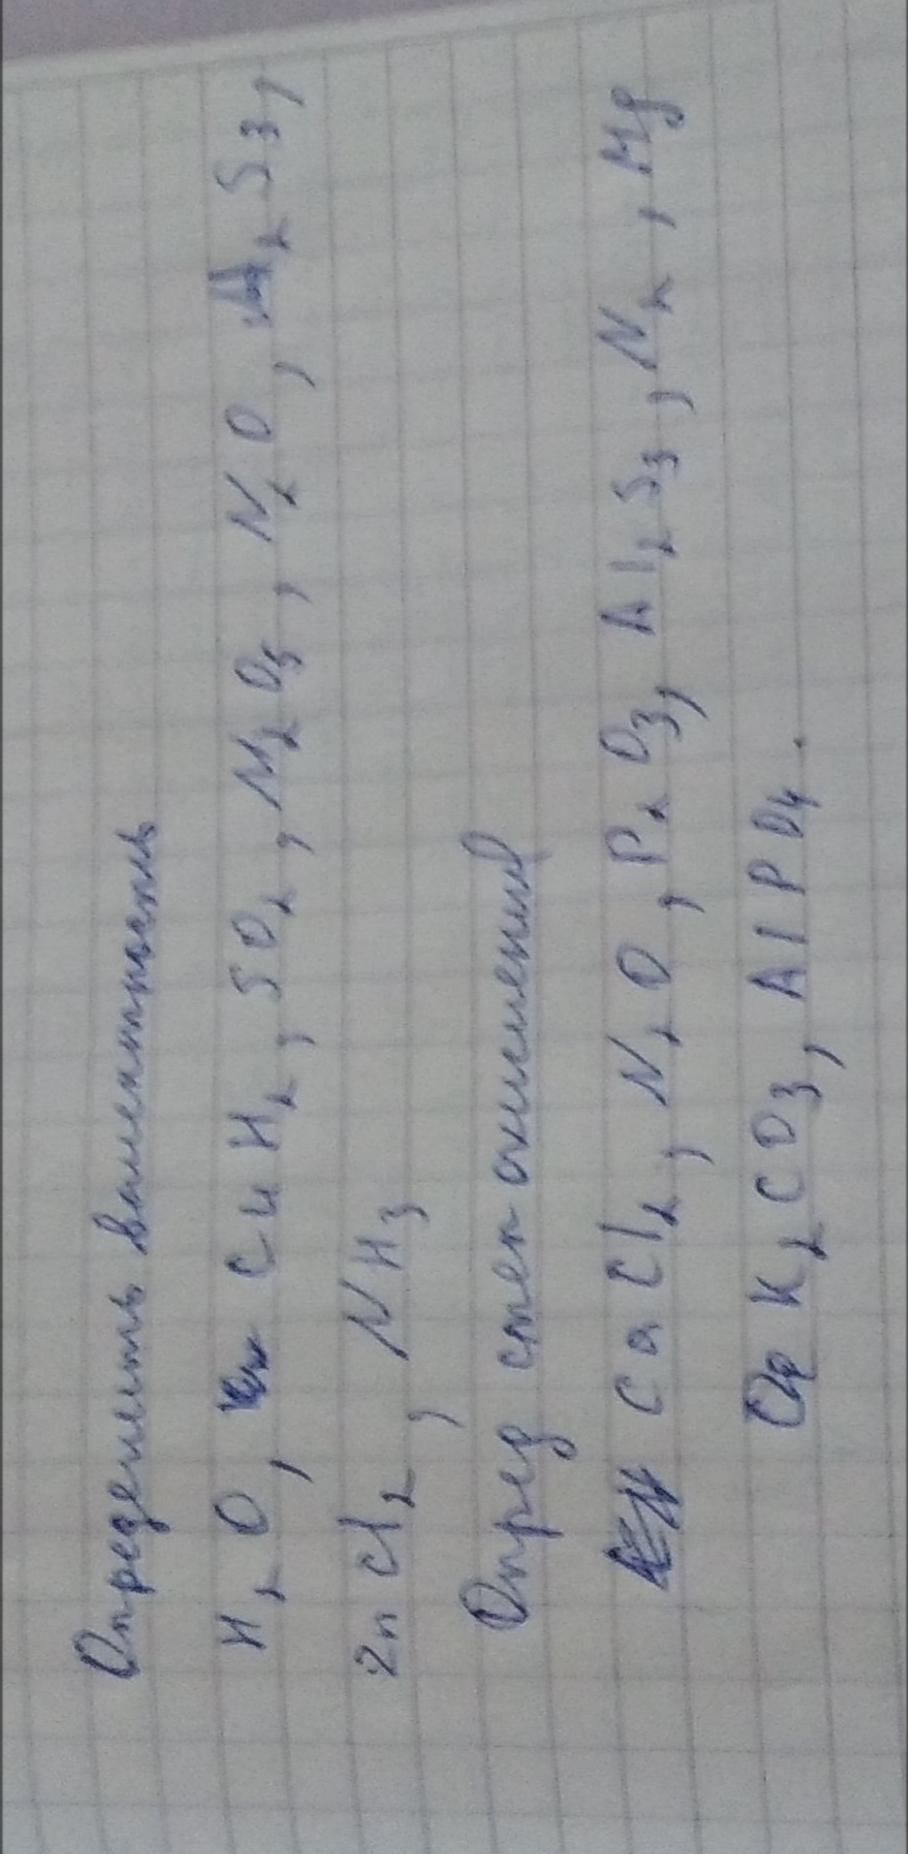 Определить валентность
H₂O, CuH₂, SO₂, N₂O₅, N₂O, Al₂S₃,
ZnCl₂, NH₃
Опред степ окисления
CaCl₂, N₂O, P₂O₃, Al₂S₃, N₂, Mg
K₂CO₃, AlPO₄.